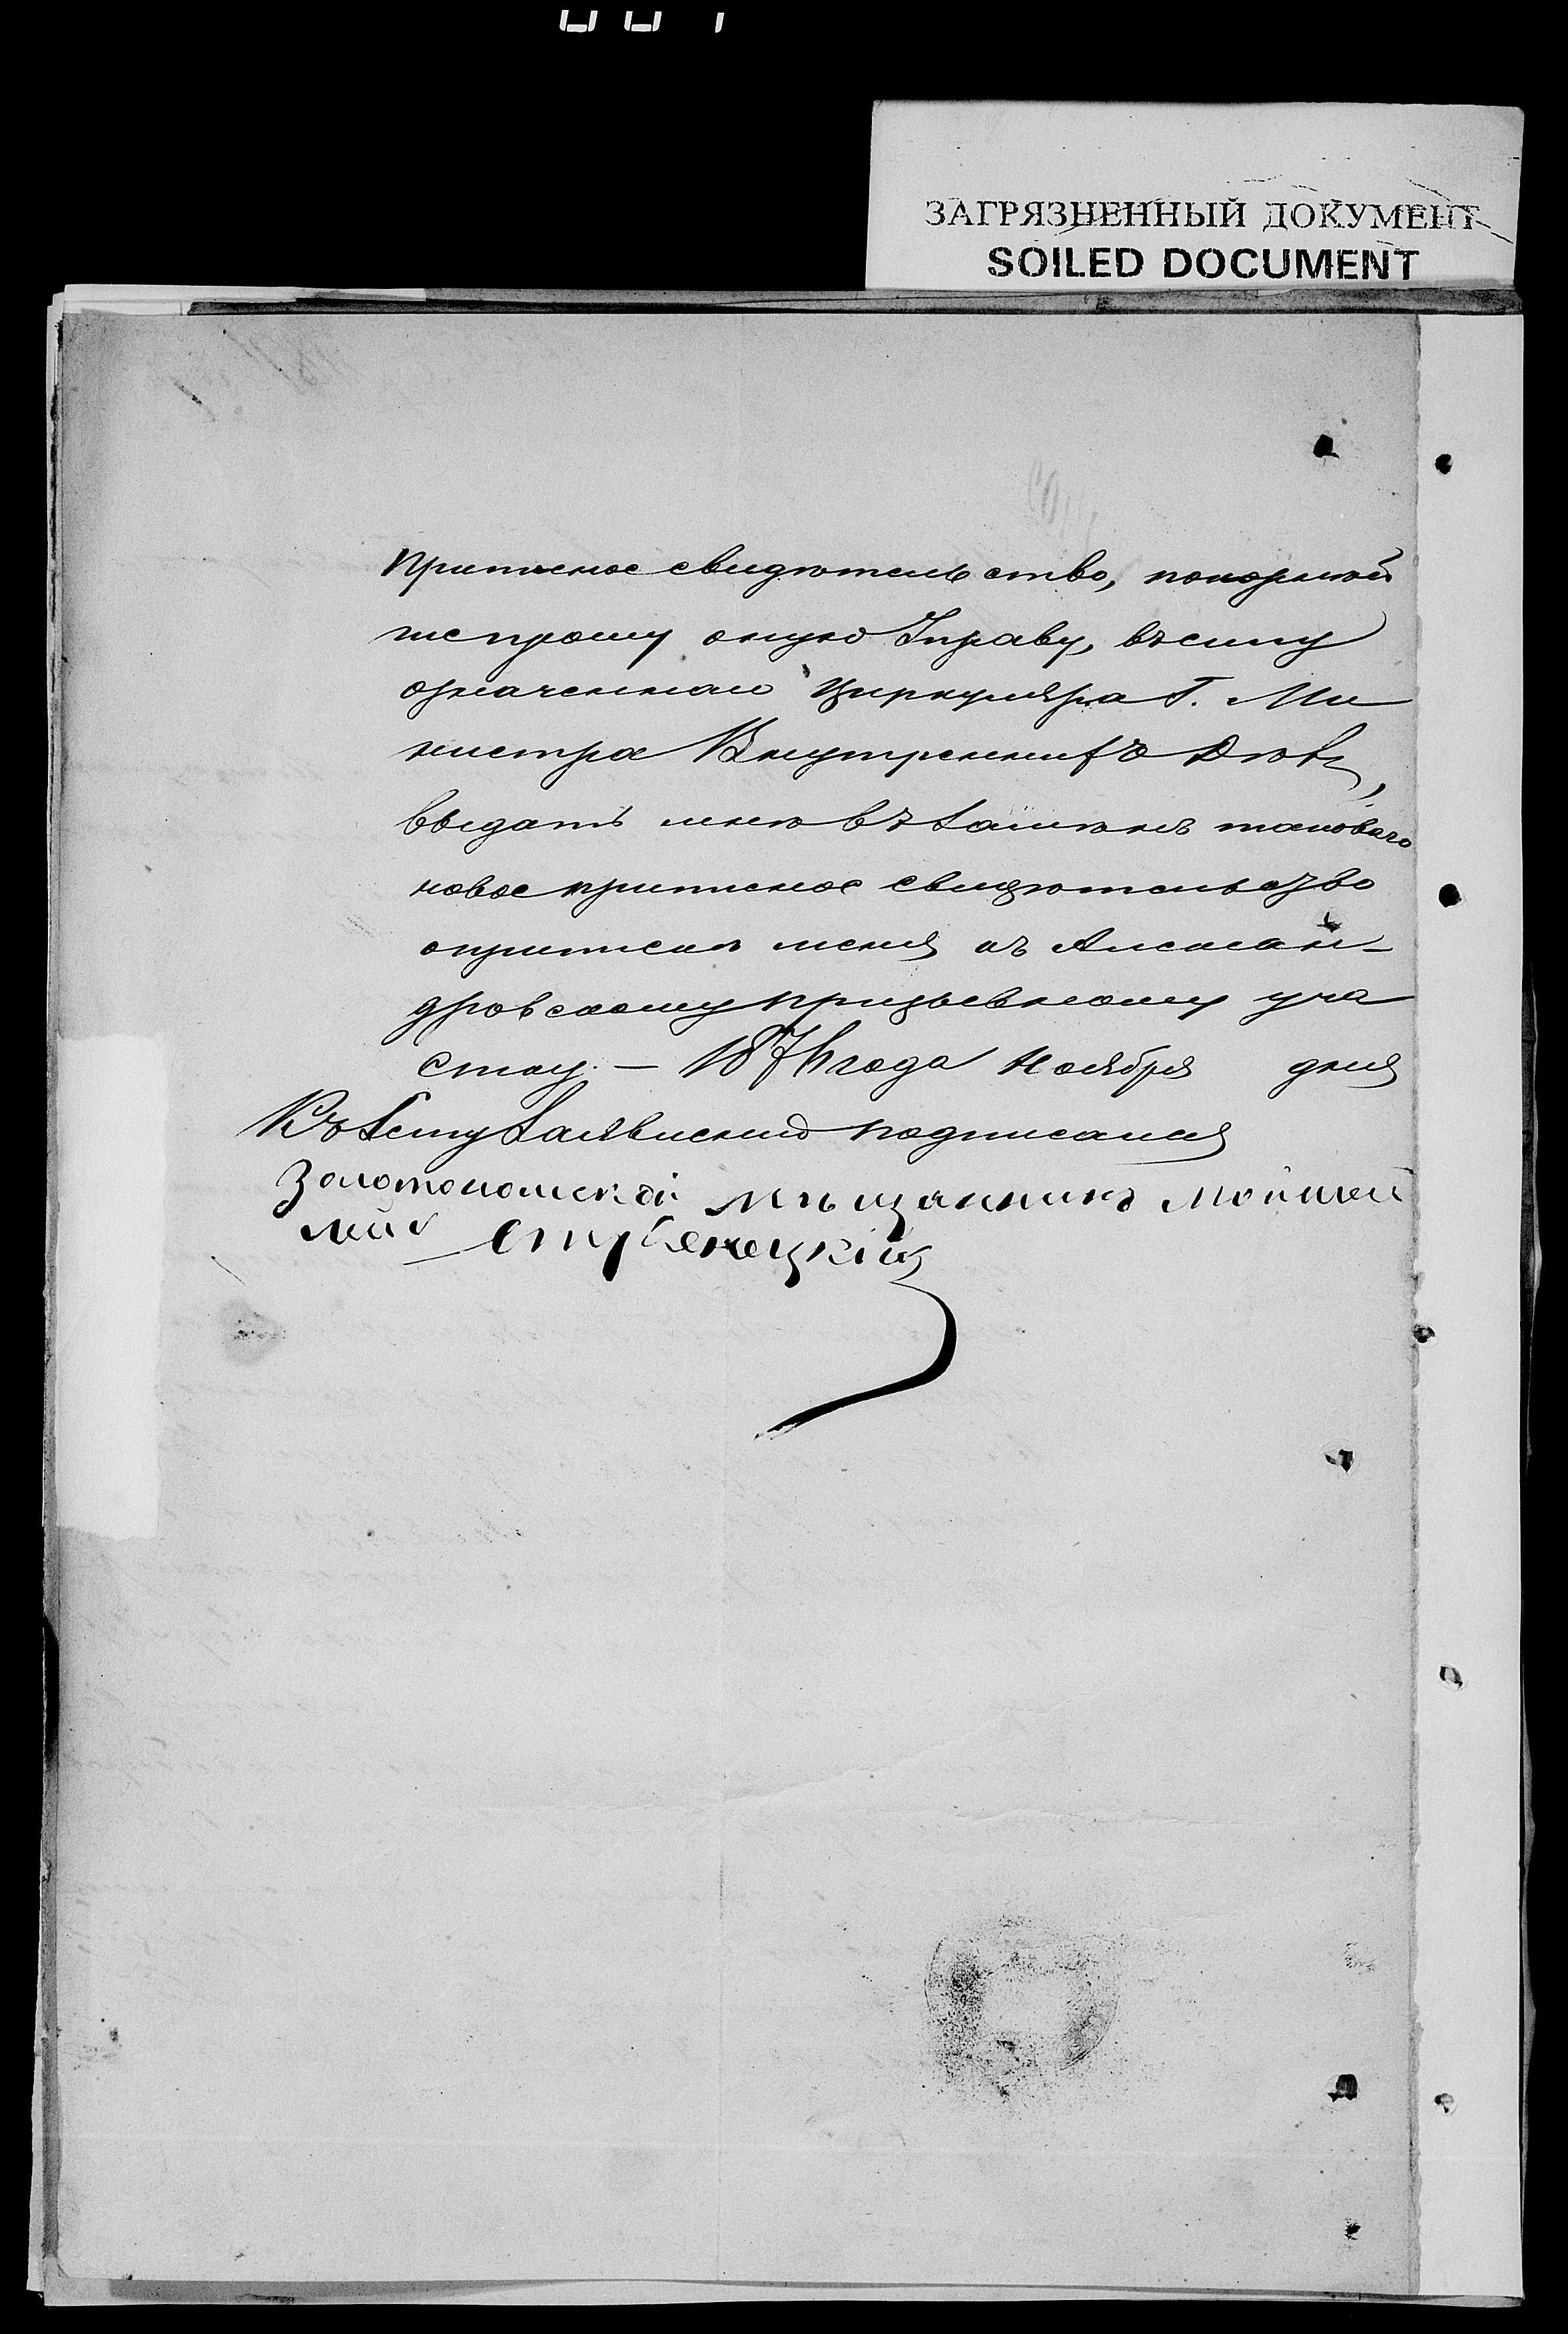 ЗАГРЯЗНЕННЫЙ ДОКУМЕНТ
SOILED DOCUMENT
приписное свидѣтельство, покорнѣй
ше прошу оную Управу, въ силу
означеннаго Циркуляра Г. Ми
нистра Внутреннихъ Дѣлъ,
выдать мнѣ въ замѣнъ таковаго
новое приписное свидѣтельство
о припискѣ меня къ Алексан-
дровскому призывному уча
стку. — 1876 года Ноября дня
Къ сему заявленію подписался
Золотоношскій мѣщанинъ Мойшей